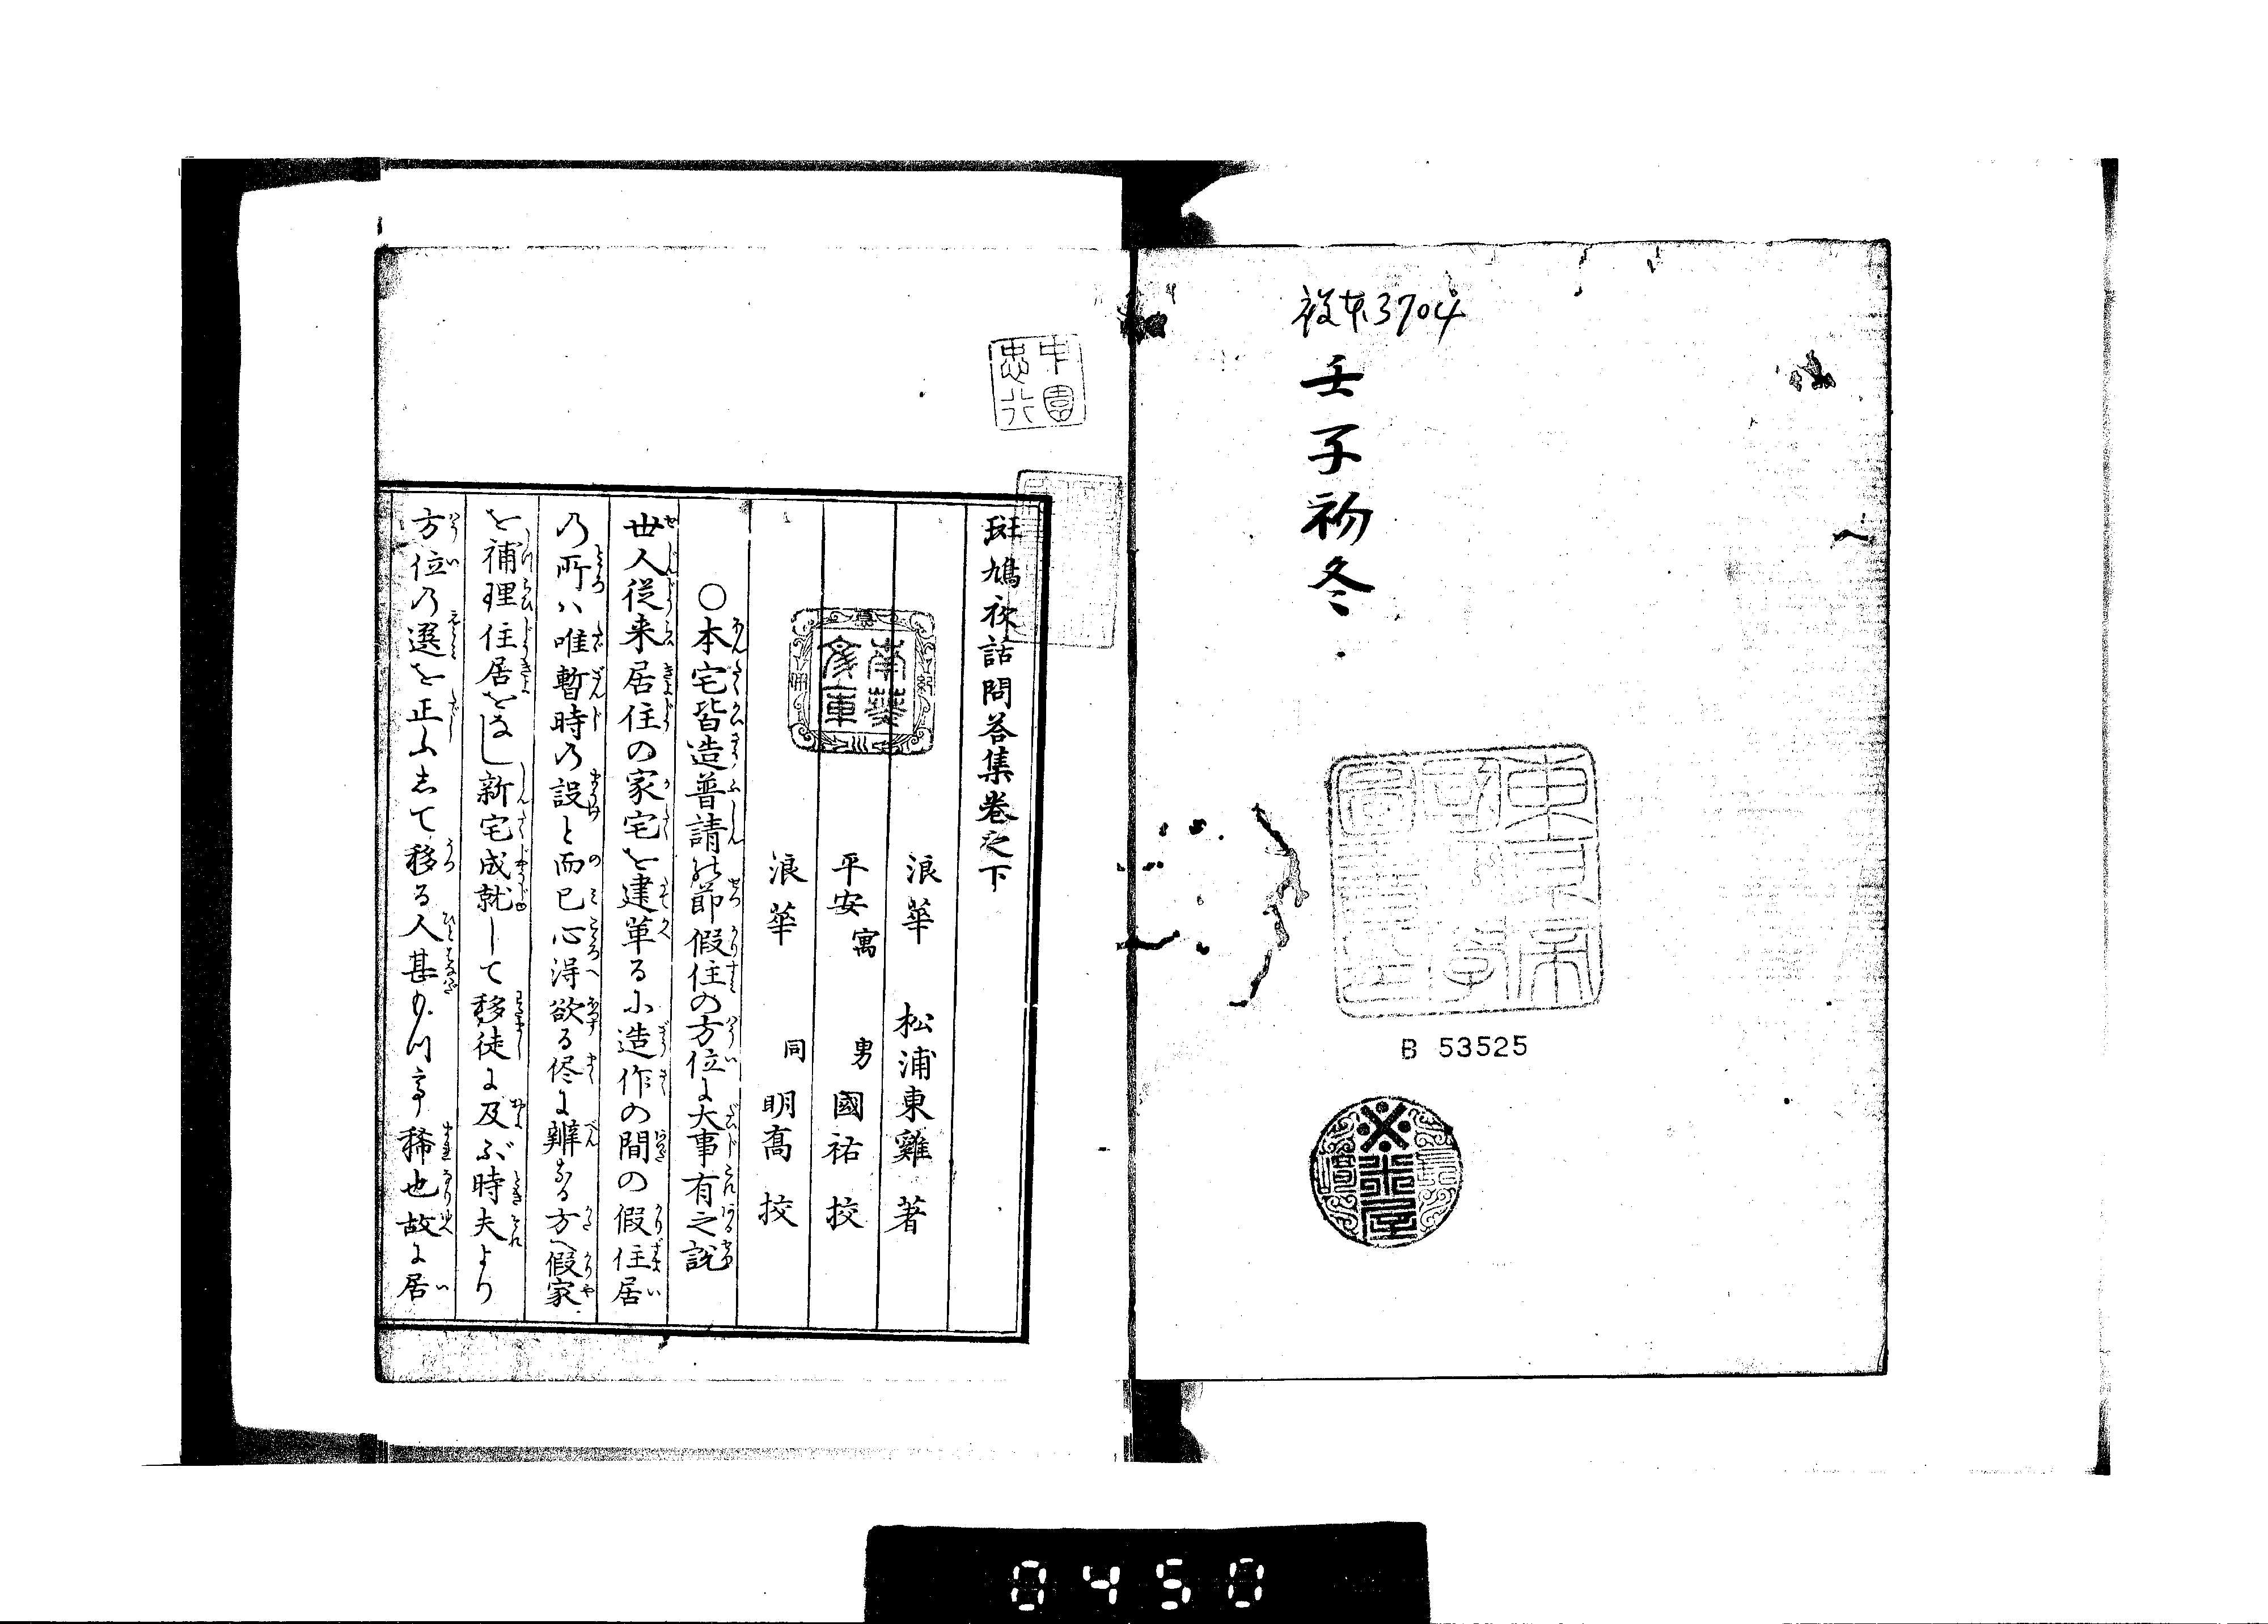 複本3704
壬子初冬
東京帝國大學圖書印
B 53525
斑鳩夜話問答集卷之下
浪華 松浦東雞 著
平安寓 男 國祐 挍
浪華 同 明高 挍
○本宅皆造普請の節假住の方位に大事有之説
世人従来居住の家宅を建革るに造作の間の假住居
の所ハ唯暫時の設と而已心得欲る侭に辨なる方へ假家
を補理住居をなし新宅成就して移徒に及ぶ時夫より
方位の選を正ふして移る人甚もつて稀也故に居
0450